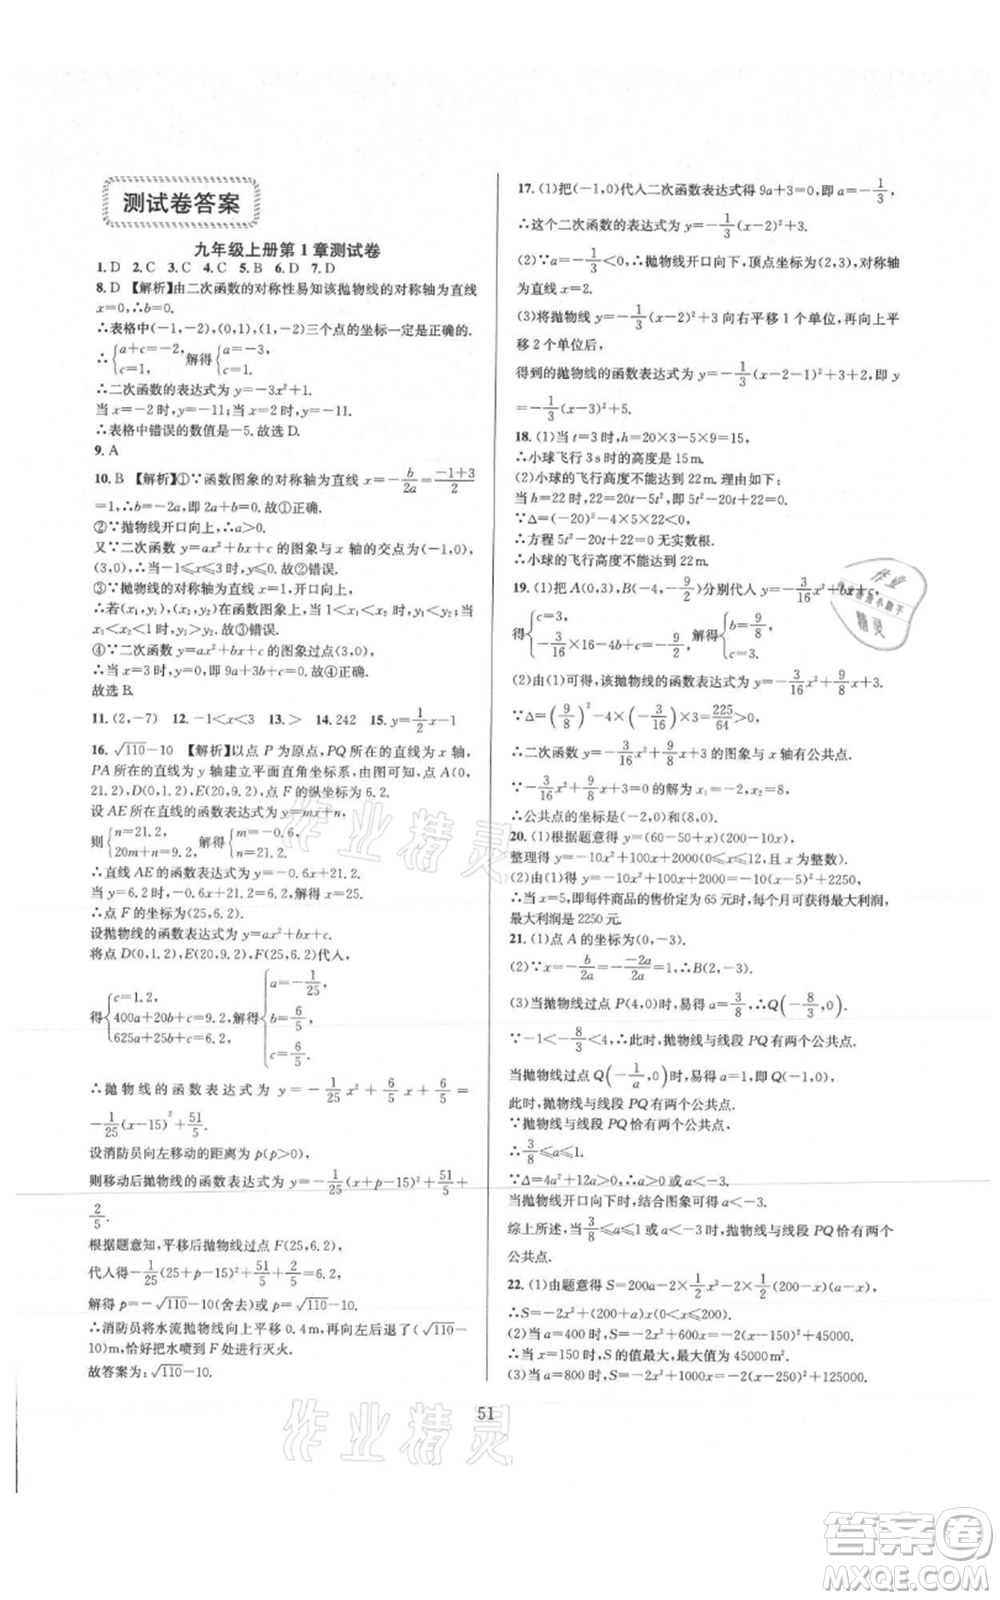 测试卷答案
九年级上册第1章测试卷
1. D 2. C 3. C 4. C 5. B 6. D 7. D
8. D 【解析】由二次函数的对称性易知该抛物线的对称轴为直线
x=0,∴b=0.
∴表格中(-1,-2),(0,1),(1,-2)三个点的坐标一定是正确的.
∴{a+c=-2, c=1, 解得{a=-3, c=1.
∴二次函数的表达式为 y=-3x²+1.
当 x=-2时,y=-11;当 x=2时,y=-11.
∴表格中错误的数值是-5.故选D.
9. A
10. B 【解析】①∵函数图象的对称轴为直线 x=-b/2a=(-1+3)/2
=1,∴b=-2a,即 2a+b=0.故①正确.
②∵抛物线开口向上,∴a>0.
又∵二次函数 y=ax²+bx+c 的图象与 x 轴的交点为(-1,0),
(3,0),∴当-1≤x≤3时,y≤0.故②错误.
③∵抛物线的对称轴为直线 x=1,开口向上,
∴若(x₁,y₁),(x₂,y₂)在函数图象上,当1<x₁<x₂时,y₁<y₂;
当x₁<x₂<1时,y₁>y₂.故③错误.
④∵二次函数 y=ax²+bx+c 的图象过点(3,0),
∴当 x=3时,y=0,即 9a+3b+c=0.故④正确.
故选B.
11. (2,-7) 12. -1<x<3 13. > 14. 242 15. y=1/2x-1
16. √110-10 【解析】以点 P 为原点,PQ所在的直线为 x 轴,
PA所在的直线为 y 轴建立平面直角坐标系,由图可知,点 A(0,
21.2),D(0,1.2),E(20,9.2),点 F的纵坐标为 6.2.
设 AE所在直线的函数表达式为 y=mx+n,
则{n=21.2, 20m+n=9.2, 解得{m=-0.6, n=21.2.
∴直线 AE的函数表达式为 y=-0.6x+21.2.
当 y=6.2时,-0.6x+21.2=6.2,解得 x=25,
∴点 F的坐标为(25,6.2).
设抛物线的函数表达式为 y=ax²+bx+c,
将点 D(0,1.2),E(20,9.2),F(25,6.2)代人,
得{c=1.2, 400a+20b+c=9.2, 625a+25b+c=6.2, 解得{a=-1/25, b=6/5, c=6/5.
∴抛物线的函数表达式为 y=-1/25x²+6/5x+6/5=
-1/25(x-15)²+51/5.
设消防员向左移动的距离为 p(p>0),
则移动后抛物线的函数表达式为 y=-1/25(x+p-15)²+51/5+
2/5.
根据题意知,平移后抛物线过点 F(25,6.2),
代人得-1/25(25+p-15)²+51/5+2/5=6.2,
解得 p=-√110-10(舍去)或 p=√110-10.
∴消防员将水流抛物线向上平移0.4m,再向左后退了(√110-
10)m,恰好把水喷到 F处进行灭火.
故答案为:√110-10.
17. (1)把(-1,0)代人二次函数表达式得 9a+3=0,即 a=-1/3,
∴这个二次函数的表达式为 y=-1/3(x-2)²+3.
(2)∵a=-1/3<0,∴抛物线开口向下,顶点为(2,3),对称轴
为直线 x=2.
(3)将抛物线 y=-1/3(x-2)²+3 向右平移1个单位,再向上平
移2个单位后,
得到的抛物线的函数表达式为 y=-1/3(x-2-1)²+3+2=
-1/3(x-3)²+5.
18. (1)当 t=3时,h=20×3-5×9=15,
∴小球飞行3s时的高度是15m.
(2)小球的飞行高度不能达到22m.理由如下:
当 h=22时,22=20t-5t²,即5t²-20t+22=0.
∵Δ=(-20)²-4×5×22<0,
∴方程5t²-20t+22=0 无实数根.
∴小球的飞行高度不能达到22m.
19. (1)把 A(0,3),B(-4,-9/2)分别代人 y=-3/16x²+bx+c,
得{c=3, -3/16×16-4b+c=-9/2, 解得{b=9/8, c=3.
(2)由(1)可得,该抛物线的函数表达式为 y=-3/16x²+9/8x+3.
∵Δ=(9/8)²-4×(-3/16)×3=225/64>0,
∴二次函数 y=-3/16x²+9/8x+3 的图象与 x轴有公共点.
∵-3/16x²+9/8x+3=0的解为 x₁=-2,x₂=8,
∴公共点的坐标是(-2,0)和(8,0).
20. (1)根据题意得 y=(60-50+x)(200-10x),
整理得 y=-10x²+100x+2000(0≤x≤12,且 x为整数).
(2)由(1)得 y=-10x²+100x+2000=-10(x-5)²+2250.
∴当 x=5,即每件商品的售价定为65元时,每个月可获得最大利润,
最大利润是2250元.
21. (1)点 A的坐标为(0,-3).
(2)∵x=-b/2a=-(-2a)/2a=1,∴B(2,-3).
(3)当抛物线过点 P(4,0)时,易得 a=3/8,∴Q(-8/3,0).
∵-1<-8/3<4,∴此时,抛物线与线段 PQ有两个公共点.
当抛物线过点 Q(-1/a,0)时,易得 a=1,即 Q(-1,0).
此时,抛物线与线段 PQ有两个公共点.
∵抛物线与线段 PQ恰有两个公共点.
∴3/8≤a≤1.
∵Δ=4a²+12a>0,∴a>0 或 a<-3.
当抛物线开口向下时,结合图象可得 a<-3.
综上所述,当3/8≤a≤1 或 a<-3时,抛物线与线段 PQ恰有两个
公共点.
22. (1)由题意得 S=200a-2×1/2x²-2×1/2(200-x)(a-x),
∴S=-2x²+(200+a)x(0≤x≤200).
(2)当 a=400时,S=-2x²+600x=-2(x-150)²+45000.
∴当 x=150时,S的值最大,最大值为45000m².
(3)当 a=800时,S=-2x²+1000x=-2(x-250)²+125000,
51
作业精灵
作业精灵
作业
精灵
答案圈
MXQE.COM